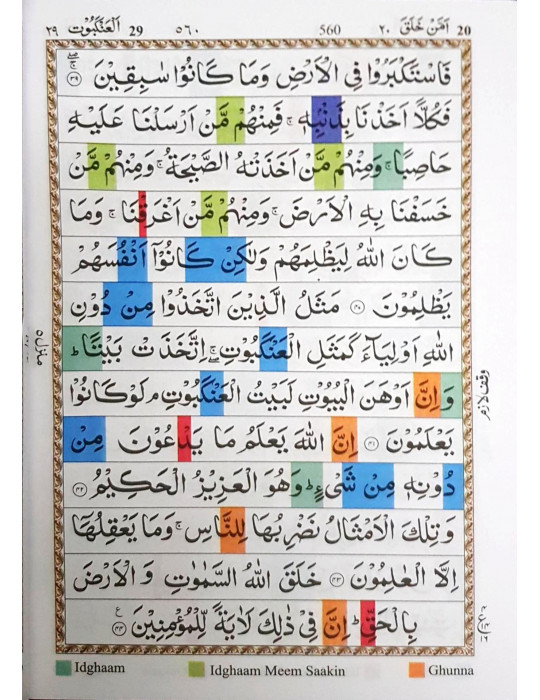 ٢٩ اَلْعَنْكَبُوْت 29 ٥٦٠ 560 اَمَّنْ خَلَقَ ٢٠ 20
فَاسْتَكْبَرُوْا فِى الْاَرْضِ وَمَا كَانُوْا سٰبِقِيْنَ ۖۚ‏ ﴿۳۹﴾
فَكُلًّا اَخَذْنَا بِذَنْۢبِهٖ‌ ۚ فَمِنْهُمْ مَّنْ اَرْسَلْنَا عَلَيْهِ
حَاصِبًا ۚ وَمِنْهُمْ مَّنْ اَخَذَتْهُ الصَّيْحَةُ‌ ۚ وَمِنْهُمْ مَّنْ
خَسَفْنَا بِهِ الْاَرْضَ‌ ۚ وَمِنْهُمْ مَّنْ اَغْرَقْنَا‌ ۚ وَمَا
كَانَ اللّٰهُ لِيَظْلِمَهُمْ وَلٰكِنْ كَانُوْۤا اَنْفُسَهُمْ
يَظْلِمُوْنَ‏ ﴿۴۰﴾ مَثَلُ الَّذِيْنَ اتَّخَذُوْا مِنْ دُوْنِ
اللّٰهِ اَوْلِيَآءَ كَمَثَلِ الْعَنْكَبُوْتِ ‌ۖۚ اِتَّخَذَتْ بَيْتًا ‌ؕ
وَ اِنَّ اَوْهَنَ الْبُيُوْتِ لَبَيْتُ الْعَنْكَبُوْتِ‌ ۘ لَوْ كَانُوْا
يَعْلَمُوْنَ‏ ﴿۴۱﴾ اِنَّ اللّٰهَ يَعْلَمُ مَا يَدْعُوْنَ مِنْ
دُوْنِهٖ مِنْ شَىْءٍ‌ ؕ وَهُوَ الْعَزِيْزُ الْحَكِيْمُ‏ ﴿۴۲﴾
وَتِلْكَ الْاَمْثَالُ نَضْرِبُهَا لِلنَّاسِ‌ۚ وَمَا يَعْقِلُهَاۤ
اِلَّا الْعٰلِمُوْنَ‏ ﴿۴۳﴾ خَلَقَ اللّٰهُ السَّمٰوٰتِ وَ الْاَرْضَ
بِالْحَقِّ‌ ؕ اِنَّ فِىْ ذٰلِكَ لَاٰيَةً لِّلْمُؤْمِنِيْنَ‏ ﴿۴۴﴾ ع
منزل ٥
وقف لازم
Idghaam Idghaam Meem Saakin Ghunna